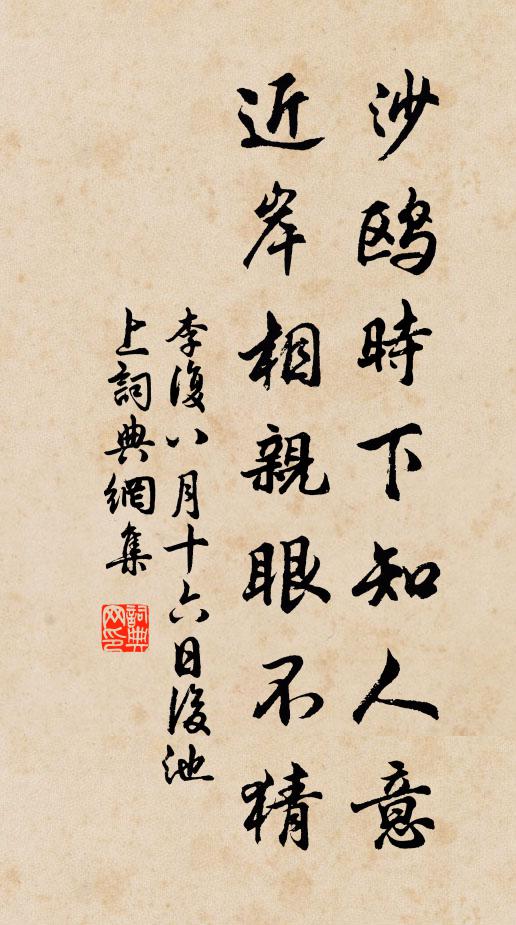 沙鸥時下知人意
近岸相親眼不猜
李復八月十六日後池
上詞典網集
詞典网印